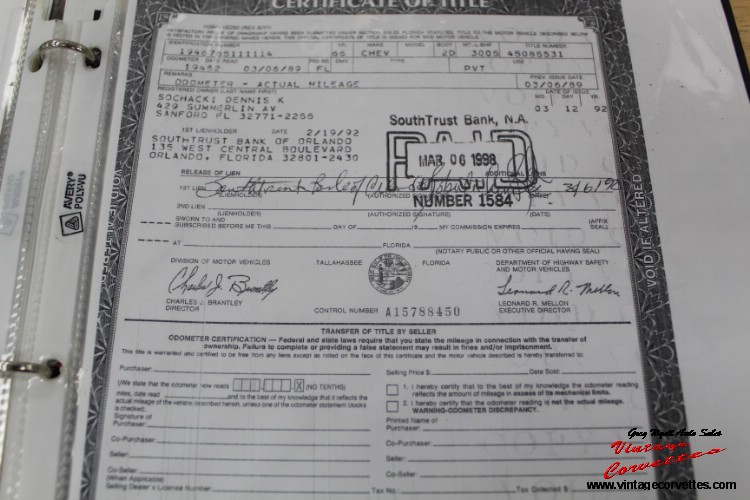 CERTIFICATE OF TITLE
IDENTIFICATION NUMBER YR. MAKE MODEL BODY WT.-L-BHP TITLE NUMBER
194676S111114 66 CHEV 2D 3005 45088531
ODOMETER DATE READ TYPE USE
19452 03/06/89 FL PVT
REMARKS PREV. ISSUE DATE
ODOMETER - ACTUAL MILEAGE 03/06/89
REGISTERED OWNER (LAST NAME FIRST) DATE OF ISSUE
MO. DAY YR.
SOCHACKI DENNIS K 03 12 92
429 SUMMERLIN AV
SANFORD FL 32771-2255
SouthTrust Bank, N.A.
1ST LIENHOLDER DATE 2/19/92
PAID
SOUTHTRUST BANK OF ORLANDO
135 WEST CENTRAL BOULEVARD
ORLANDO, FLORIDA 32801-2430
MAR 06 1998
RELEASE OF LIEN
1ST LIEN
(LIENHOLDER) (DATE)
NUMBER 1584
2ND LIEN
(LIENHOLDER) (AUTHORIZED SIGNATURE) (DATE)
SWORN TO AND
SUBSCRIBED BEFORE ME THIS DAY OF 19 MY COMMISSION EXPIRES (AFFIX SEAL)
AT FLORIDA
(NOTARY PUBLIC OR OTHER OFFICIAL HAVING SEAL)
DIVISION OF MOTOR VEHICLES TALLAHASSEE FLORIDA DEPARTMENT OF HIGHWAY SAFETY
AND MOTOR VEHICLES
Charles J. Brantley Leonard R. Mellon
CHARLES J. BRANTLEY LEONARD R. MELLON
DIRECTOR CONTROL NUMBER A15788450 EXECUTIVE DIRECTOR
TRANSFER OF TITLE BY SELLER
ODOMETER CERTIFICATION — Federal and state laws require that you state the mileage in connection with the transfer of
ownership. Failure to complete or providing a false statement may result in fines and/or imprisonment.
This title is warranted and certified to be free from any liens except as noted on the face of this certificate and the motor vehicle described is hereby transferred to:
Purchaser: Selling Price $ Date Sold:
(We state that the odometer now reads X (NO TENTHS)
miles, date read and to the best of my knowledge that it reflects the
actual mileage of the vehicle described herein, unless one of the odometer statement blocks
is checked:
1. I hereby certify that to the best of my knowledge the odometer reading
reflects the amount of mileage in excess of its mechanical limits.
2. I hereby certify that the odometer reading is not the actual mileage.
WARNING-ODOMETER DISCREPANCY.
Signature of
Purchaser: Printed Name of
Purchaser:
Co-Purchaser: Co-Purchaser:
Seller: Seller:
Co-Seller: Co-Seller:
(When Applicable)
Selling Dealer's License Number Tax No. Tax Collected $
VOID IF ALTERED
AVERY
POLY-VU
Greg Wyatt Auto Sales
Vintage
Corvettes
www.vintagecorvettes.com